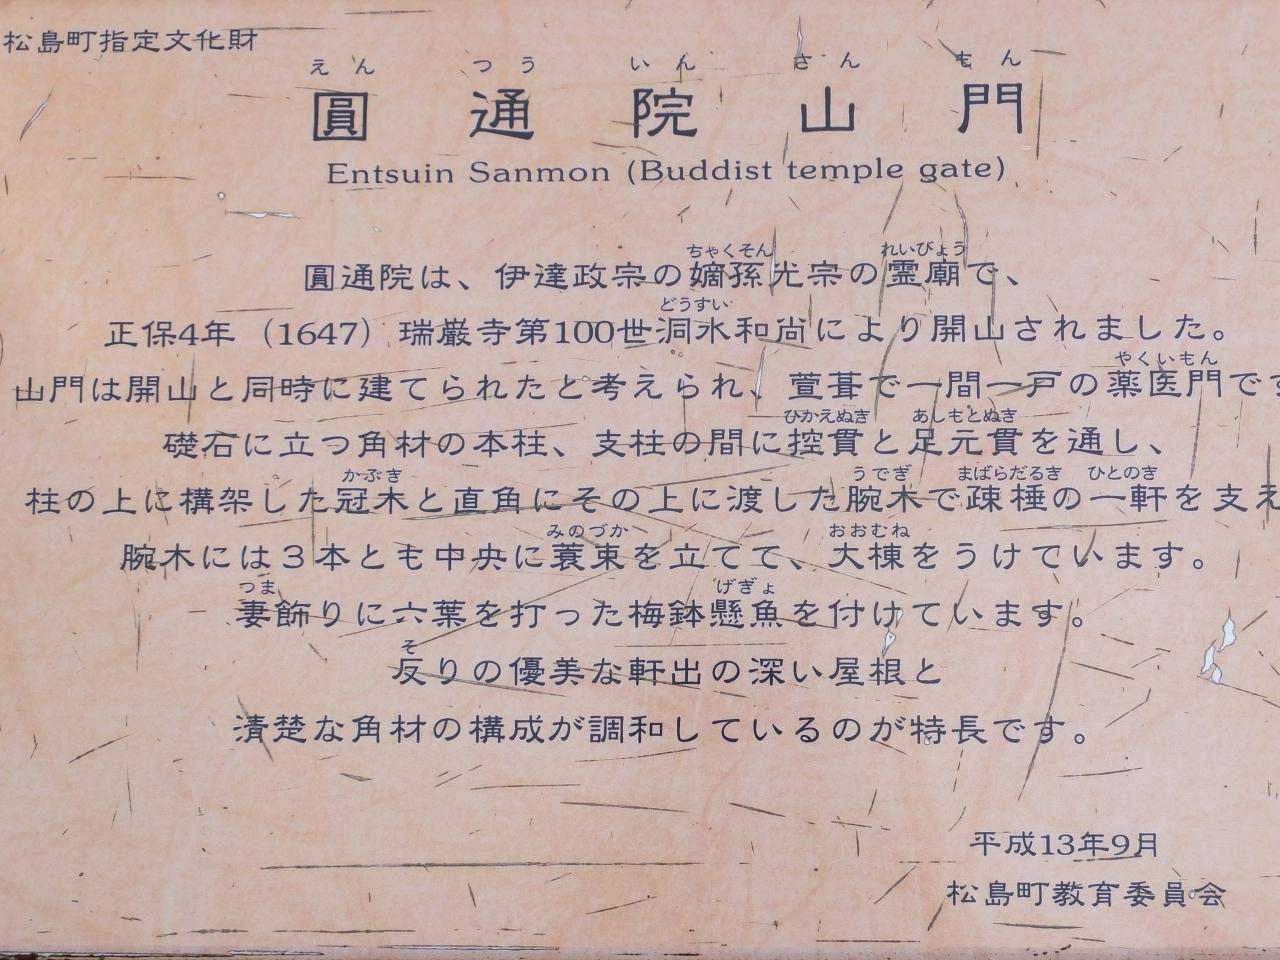 松島町指定文化財
えん つう いん さん もん
圓通院山門
Entsuin Sanmon (Buddist temple gate)
ちゃくそん れいびょう
圓通院は、伊達政宗の嫡孫光宗の霊廟で、
どうすい
正保4年（1647）瑞巌寺第100世洞水和尚により開山されました。
やくいもん
山門は開山と同時に建てられたと考えられ、萱葺で一間一戸の薬医門です
ひかえぬき あしもとぬき
礎石に立つ角材の本柱、支柱の間に控貫と足元貫を通し、
かぶき うでぎ まばらだるき ひとのき
柱の上に構架した冠木と直角にその上に渡した腕木で疎棰の一軒を支え
みのづか おおむね
腕木には３本とも中央に蓑束を立てて、大棟をうけています。
つま げぎょ
妻飾りに六葉を打った梅鉢懸魚を付けています。
そ
反りの優美な軒出の深い屋根と
清楚な角材の構成が調和しているのが特長です。
平成13年9月
松島町教育委員会